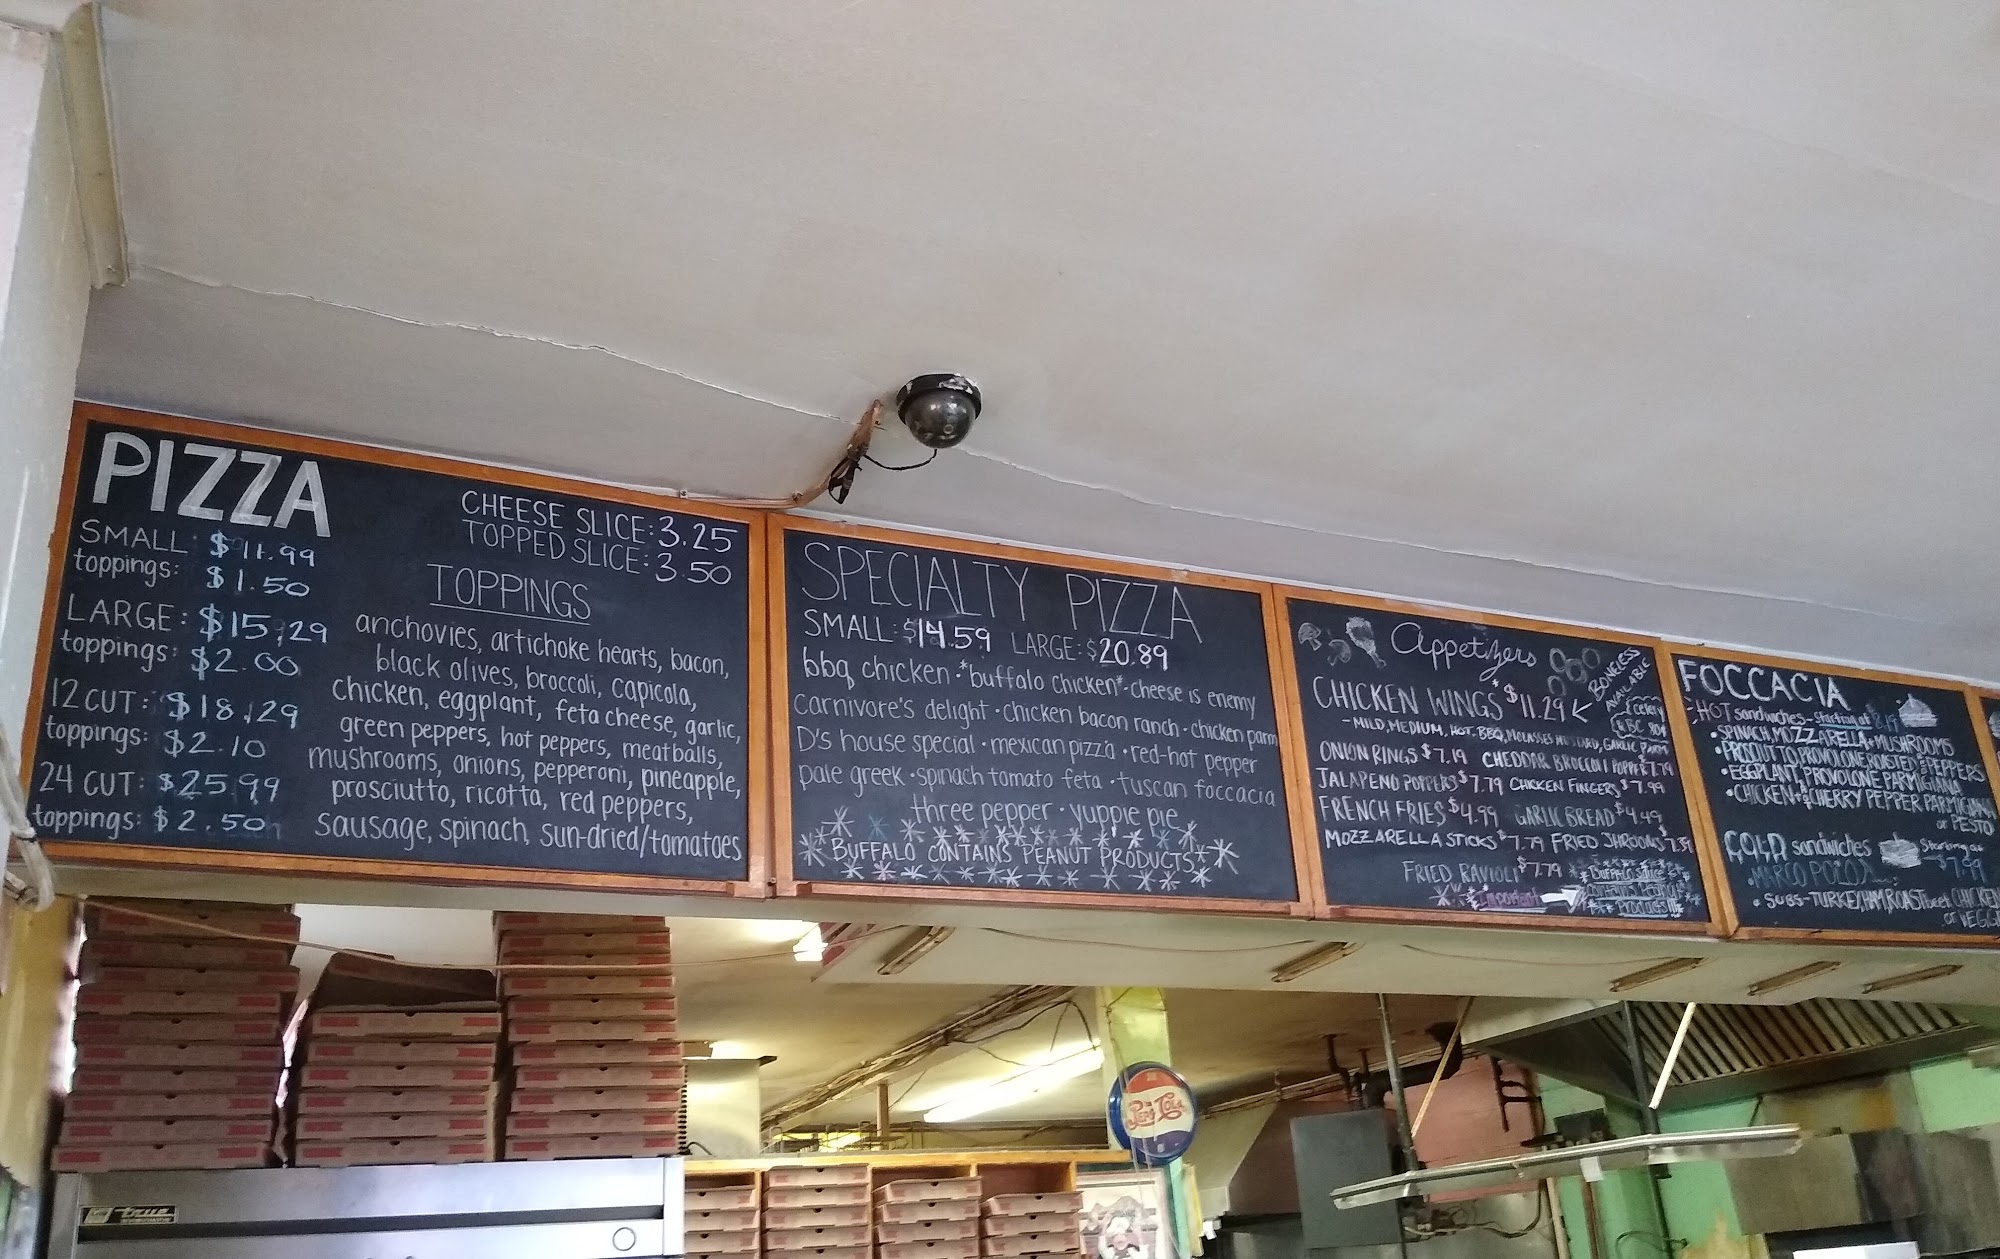 PIZZA
SMALL: $11.99
toppings: $1.50
LARGE: $15.29
toppings: $2.00
12 CUT: $18.29
toppings: $2.10
24 CUT: $25.99
toppings: $2.50
CHEESE SLICE: 3.25
TOPPED SLICE: 3.50
TOPPINGS
anchovies, artichoke hearts, bacon,
black olives, broccoli, capicola,
chicken, eggplant, feta cheese, garlic,
green peppers, hot peppers, meatballs,
mushrooms, onions, pepperoni, pineapple,
prosciutto, ricotta, red peppers,
sausage, spinach, sun-dried/tomatoes
SPECIALTY PIZZA
SMALL: $14.59 LARGE: $20.89
bbq chicken • *buffalo chicken* • cheese is enemy
carnivore's delight • chicken bacon ranch • chicken parm
D's house special • mexican pizza • red-hot pepper
pale greek • spinach tomato feta • tuscan foccacia
three pepper • yuppie pie
BUFFALO CONTAINS PEANUT PRODUCTS
Appetizers
CHICKEN WINGS* $11.29
BONELESS
AVAILABLE
- MILD, MEDIUM, HOT, BBQ, MOLASSES MUSTARD, GARLIC PARM
ONION RINGS $7.19 CHEDDAR BROCCOLI POPPER 7.79
JALAPENO POPPERS $7.79 CHICKEN FINGERS $7.99
FRENCH FRIES $4.99 GARLIC BREAD $4.49
MOZZARELLA STICKS $7.79 FRIED SHROOMS
FRIED RAVIOLI $7.79
Important
BUFFALO SAUCE
Contains Peanut
Products!!!
FOCCACIA
- HOT sandwiches - starting at
• SPINACH, MOZZARELLA + MUSHROOMS
• PROSCIUTTO, PROVOLONE, ROASTED PEPPERS
• EGGPLANT, PROVOLONE, PARMIGIANA
• CHICKEN + CHERRY PEPPER PARMIGIANA
or PESTO
COLD sandwiches Starting at
$7.99
MARCO POLO
• SUBS - TURKEY, HAM, ROAST beef, CHICKEN
or VEGGIE
Pepsi Cola
true